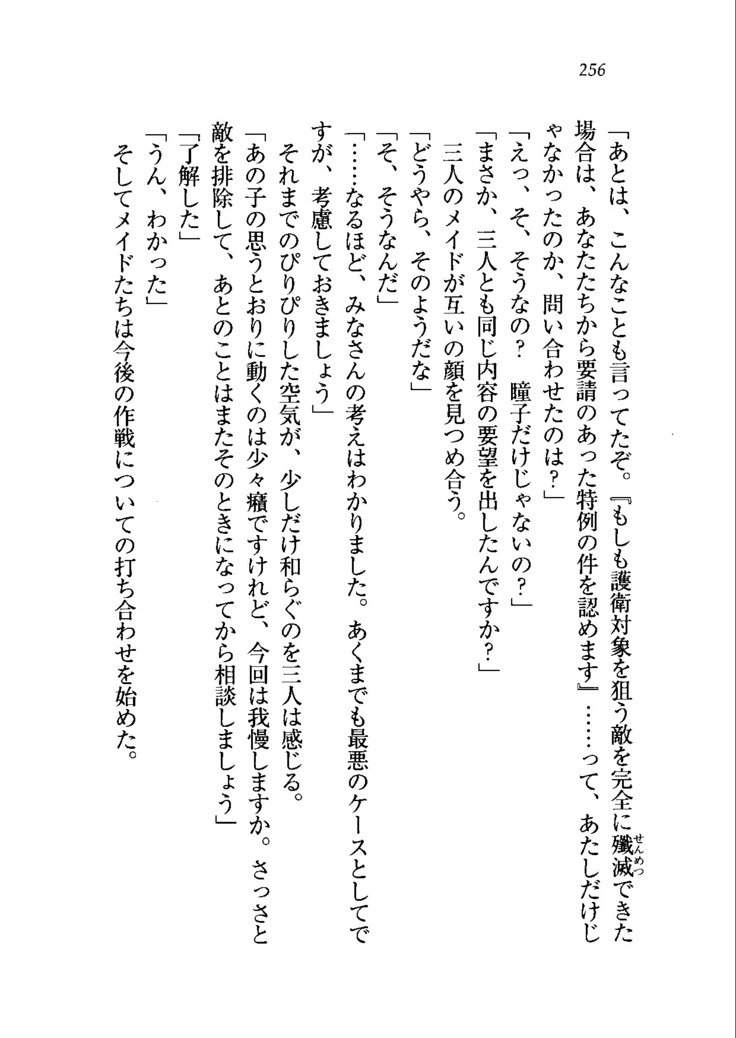 256
「あとは、こんなことも言ってたぞ。『もしも護衛対象を狙う敵を完全に殲滅できた
せんめつ
場合は、あなたたちから要請のあった特例の件を認めます』……って、あたしだけじ
ゃなかったのか、問い合わせたのは?」
「えっ、そ、そうなの?　瞳子だけじゃないの?」
「まさか、三人とも同じ内容の要望を出したんですか?」
三人のメイドが互いの顔を見つめ合う。
「どうやら、そのようだな」
「そ、そうなんだ」
「……なるほど、みなさんの考えはわかりました。あくまでも最悪のケースとしてで
すが、考慮しておきましょう」
それまでのぴりぴりした空気が、少しだけ和らぐのを三人は感じる。
「あの子の思うとおりに動くのは少々癪ですけれど、今回は我慢しますか。さっさと
敵を排除して、あとのことはまたそのときになってから相談しましょう」
「了解した」
「うん、わかった」
そしてメイドたちは今後の作戦についての打ち合わせを始めた。